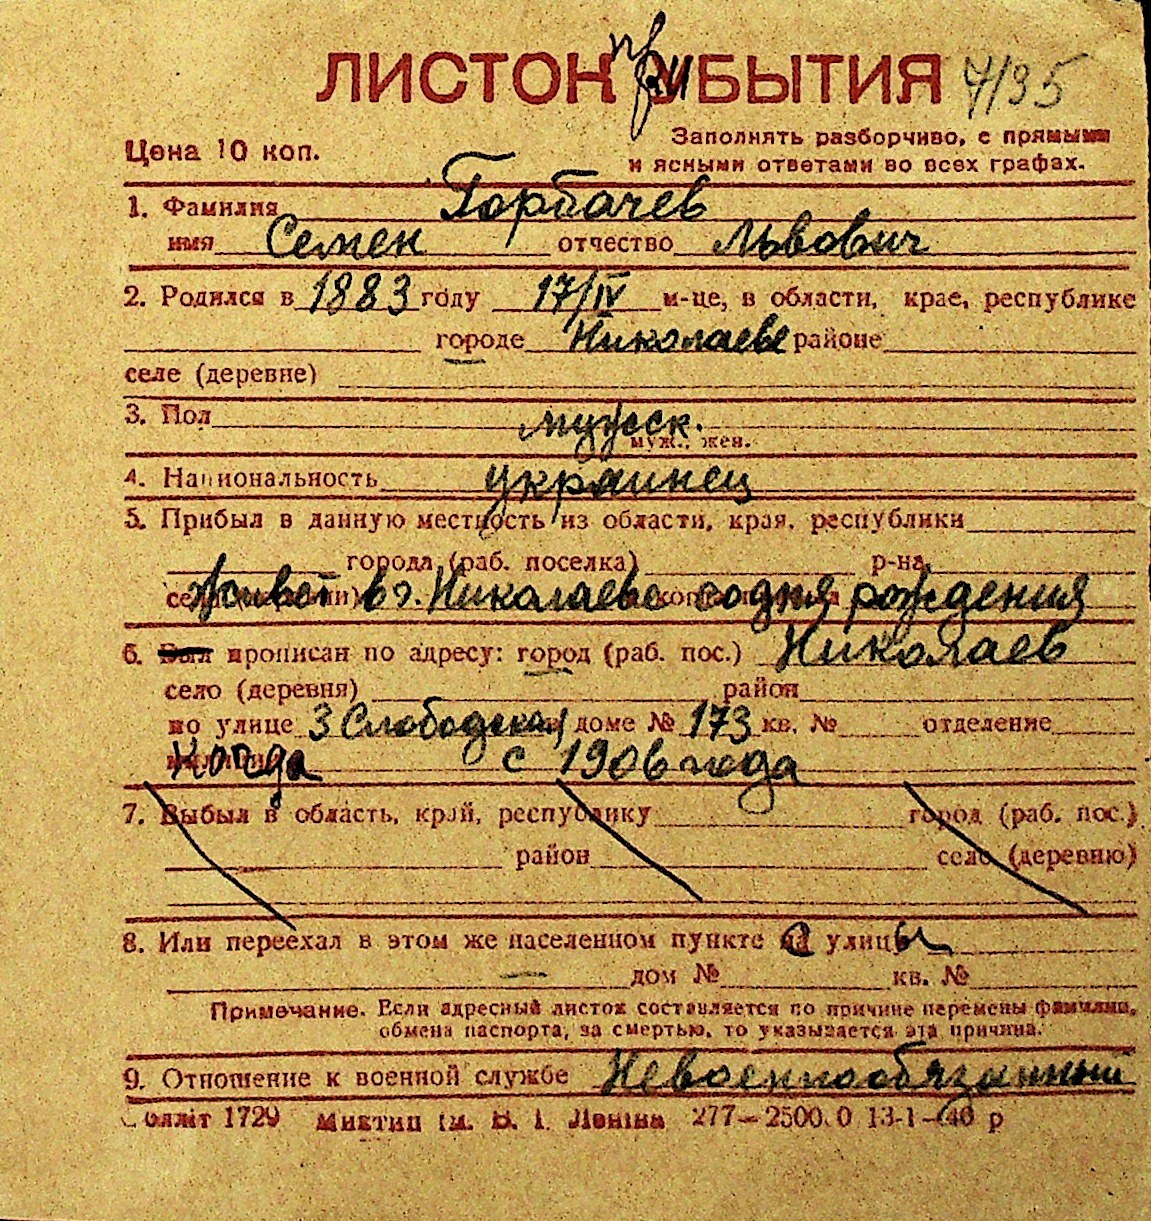 ЛИСТОК прИБЫТИЯ 7/95
Цена 10 коп.
Заполнять разборчиво, с прямыми
и ясными ответами во всех графах.
1. Фамилия Горбачев
имя Семен отчество Львович
2. Родился в 1883 году 17/IV м-це, в области, крае, республике
городе Николаеве районе
селе (деревне)
3. Пол мужск.
муж., жен.
4. Национальность украинец
5. Прибыл в данную местность из области, края, республики
города (раб. поселка) р-на
живет в г. Николаеве со дня рождения
6. Был прописан по адресу: город (раб. пос.) Николаев
село (деревня) район
по улице 3 Слободская доме № 173 кв. № отделение
Когда с 1906 года
7. Выбыл в область, край, республику город (раб. пос.)
район село (деревню)
8. Или переехал в этом же населенном пункте с улицы
— дом № кв. №
Примечание. Если адресный листок составляется по причине перемены фамилии,
обмена паспорта, за смертью, то указывается эта причина.
9. Отношение к военной службе Невоеннообязанный
Обллiт 1729 Миктип iм. В. І. Ленiна 277—2500.0 13-1—46 р